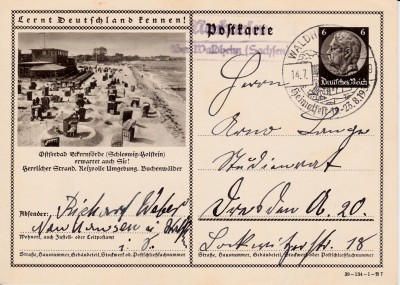 Lernt Deutschland kennen!
Postkarte
über Waldheim (Sachsen)
Deutsches Reich
6 6
WALDHEIM
14.7.
Heimatfest 19.-23.8.19
Ostseebad Eckernförde (Schleswig-Holstein)
erwartet auch Sie!
Herrlicher Strand. Reizvolle Umgebung. Buchenwälder
Herrn
Arno Lange
Studienrat
Dresden A. 20.
Lockwitzerstr. 18
Absender: Richard Weber
i. S.
Wohnort, auch Zustell- oder Leitpostamt
Straße, Hausnummer, Gebäudeteil, Stockwerk od. Postschließfachnummer
Straße, Hausnummer, Gebäudeteil, Stockwerk oder Postschließfachnummer
39-134-1-B7